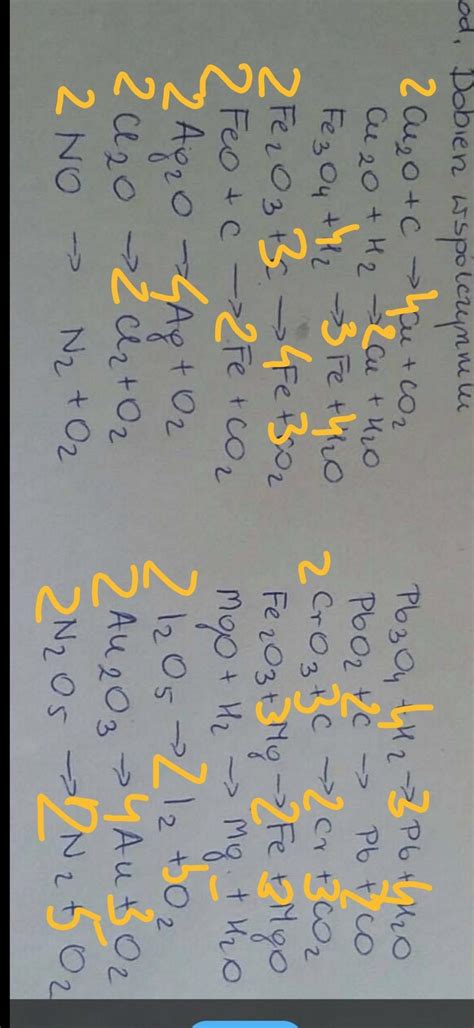 od. Dobierz współczynniki
2 Cu2O + C → 4Cu + CO2
Cu2O + H2 → 2Cu + H2O
Fe3O4 + 4H2 → 3Fe + 4H2O
2 Fe2O3 + 3C → 4Fe + 3CO2
2 FeO + C → 2Fe + CO2
2 Ag2O → 4Ag + O2
2 Cl2O → 2Cl2 + O2
2 NO → N2 + O2
Pb3O4 + 4H2 → 3Pb + 4H2O
PbO2 + 2C → Pb + 2CO
2 CrO3 + 3C → 2Cr + 3CO2
Fe2O3 + 3Mg → 2Fe + 3MgO
MgO + H2 → Mg + H2O
2 I2O5 → 2I2 + 5O2
2 Au2O3 → 4Au + 3O2
2 N2O5 → 2N2 + 5O2